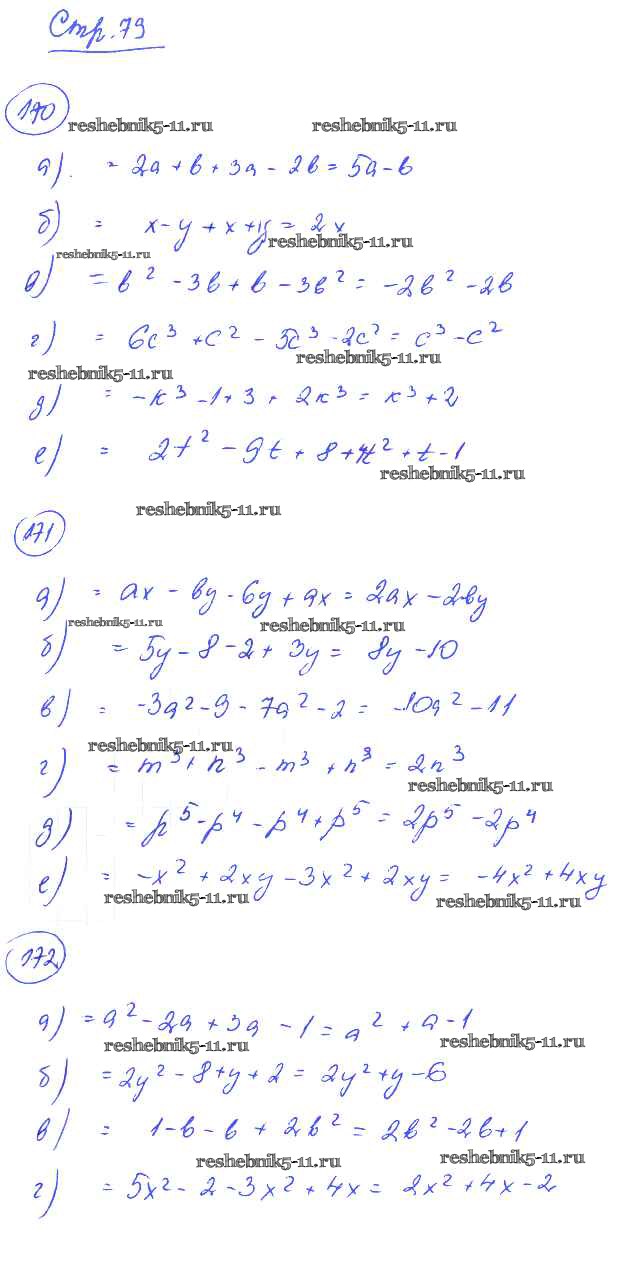 Стр. 79
170
reshebnik5-11.ru reshebnik5-11.ru
а). = 2a + b + 3a - 2b = 5a - b
б) = x - y + x + y = 2x
reshebnik5-11.ru
reshebnik5-11.ru
в) = b² - 3b + b - 3b² = -2b² - 2b
г) = 6c³ + c² - 5c³ - 2c² = c³ - c²
reshebnik5-11.ru
reshebnik5-11.ru
д) = -k³ - 1 + 3 + 2k³ = k³ + 2
е) = 2t² - 9t + 8 + 4t² + t - 1
reshebnik5-11.ru
reshebnik5-11.ru
171
а) = ax - by - by + ax = 2ax - 2by
reshebnik5-11.ru reshebnik5-11.ru
б) = 5y - 8 - 2 + 3y = 8y - 10
в) = -3a² - 9 - 7a² - 2 = -10a² - 11
reshebnik5-11.ru
г) = m³ + n³ - m³ + n³ = 2n³
reshebnik5-11.ru
д) = p⁵ - p⁴ - p⁴ + p⁵ = 2p⁵ - 2p⁴
е) = -x² + 2xy - 3x² + 2xy = -4x² + 4xy
reshebnik5-11.ru reshebnik5-11.ru
172
а) = a² - 2a + 3a - 1 = a² + a - 1
reshebnik5-11.ru reshebnik5-11.ru
б) = 2y² - 8 + y + 2 = 2y² + y - 6
в) = 1 - b - b + 2b² = 2b² - 2b + 1
reshebnik5-11.ru reshebnik5-11.ru
г) = 5x² - 2 - 3x² + 4x = 2x² + 4x - 2